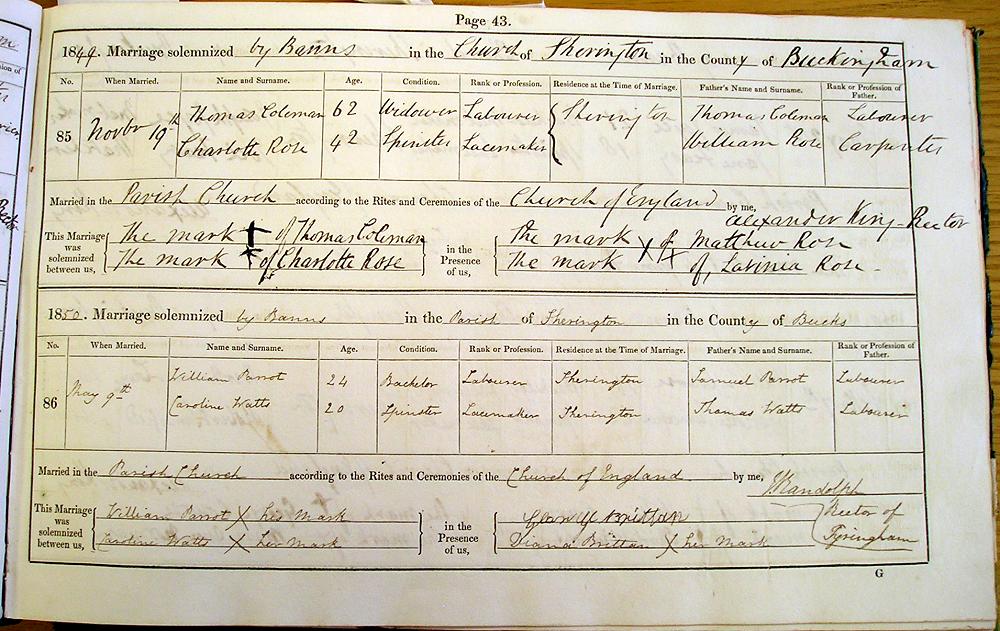 Page 43.
1849. Marriage solemnized by Banns in the Church of Sherington in the County of Buckingham
No. When Married. Name and Surname. Age. Condition. Rank or Profession. Residence at the Time of Marriage. Father's Name and Surname. Rank or Profession of Father.
Thomas Coleman 62 Widower Labourer Sherington Thomas Coleman Labourer
85 Novbr 19th
Charlotte Rose 42 Spinster Lacemaker William Rose Carpenter
Married in the Parish Church according to the Rites and Ceremonies of the Church of England by me,
Alexander King - Rector
This Marriage was solemnized between us,
The mark + of Thomas Coleman
The mark + of Charlotte Rose
in the Presence of us,
The mark X of Matthew Rose
The mark X of, Lavinia Rose -
1850. Marriage solemnized by Banns in the Parish of Sherington in the County of Bucks
No. When Married. Name and Surname. Age. Condition. Rank or Profession. Residence at the Time of Marriage. Father's Name and Surname. Rank or Profession of Father.
William Parrot 24 Bachelor Labourer Sherington Samuel Parrot Labourer
86 May 9th
Caroline Watts 20 Spinster Lacemaker Sherington Thomas Watts Labourer
Married in the Parish Church according to the Rites and Ceremonies of the Church of England by me,
J Randolph
Rector of
Tyringham
This Marriage was solemnized between us,
William Parrot X his Mark
Caroline Watts X her Mark
in the Presence of us,
Brittan
Diana Brittan X her Mark
G